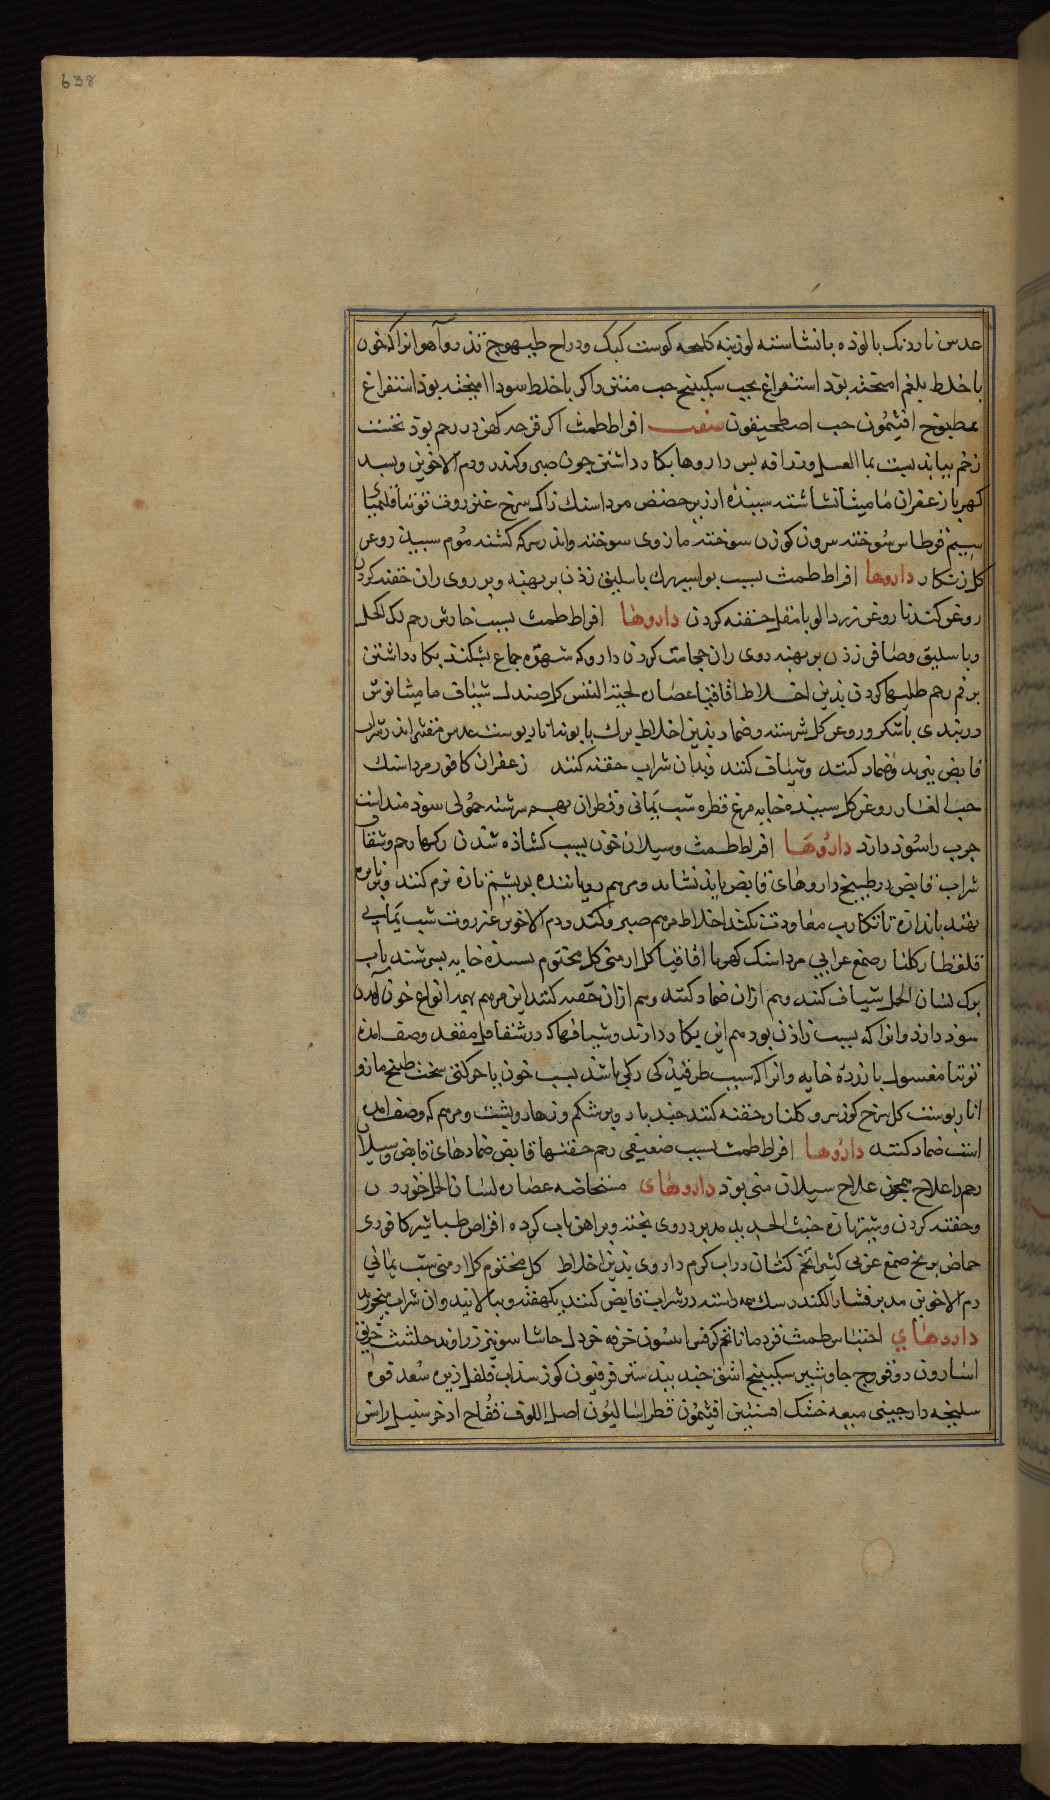 638
عدس ناردنک بالوذه بانشاسته لوزینه کلیجه کوست کبک ودراح طیهوج تذرو آهو انرا که خون
با خلط بلغم امیخته بوذ استفراغ بحب سکبینج حب منتن واکر با خلط سودا امیخته بوذ استفراغ
بمطبوخ افتیمون حب اصطمخیقون صفت افراط طمث اکر قرحه کهن در رحم بوذ نخست
زخم بباید شست بما العسل وزراقه بس داروها بکار داشتن جون صبر وکندر ودم الاخوین وبسد
کهربا زعفران مامیثا نشاسته سبیذه ارزیز حضض مرداسنک زاک سرخ عنزروت توتیا اقلیمیای
سیم قرطاس سوخته سرون کوزن سوخته مازوی سوخته واندر سرکه کشته موم سبید روغن
کل زنکار داروها افراط طمث بسبب بواسیر رک باسلیق زذن بر بهنه وبر روی ران حقنه کردن
روغن کنذنا روغن زردالو با مقل حقنه کردن داروها افراط طمث بسبب خارش رحم رک اکحل
وباسلیق وصافن زذن بر بهنه روی ران حجامت کردن دارو که شهوة جماع بشکند بکار داشتن
بر فم رحم طلیها کردن بذین اخلاط اقاقیا عصاره لحیة التیس کل صندل شیاف مامیثا نوش
دربندی باشکر وروغن کل سرشته وضماد بذین اخلاط برک بابونه نار بوست عدس مقشر اندر شراب
قابض بپزند وضماد کنند وشیاف کنند وبدان شراب حقنه کنند زعفران کافور مرداسنک
حب الغار روغن کل سبیذه خایه مرغ قطره شب یمانی وقطران بهم سرشته حمولی سوذمند است
جرب را سوذ دارد داروها افراط طمث وسیلان خون بسبب کشاذه شذن رکها رحم وشقاق
شراب قابض در طبیخ داروهای قابض باید نشاند ومرهم رویاننده بر بشم تازه نرم کنند وبر باره
نهند باندازه تا تنکاب معاودت نکند اخلاط مرهم صبر وکندر ودم الاخوین عنزروت شب یمانی
قلقطار کلنار صمغ عرابی مرداسنک کهربا اقاقیا کل ارمنی کل مختوم سبیذه خایه بسرشند باب
برک لسان الحمل شیاف کنند وهم ازان ضماد کنند وهم ازان حقنه کنند این مرهم همه انواع خون آمدن
سوذ دارد وانرا که بسبب زاذن بود هم این بکار دارند وشیافها که در شقاق مقعد وصف امده
توتیا مغسول با زرده خایه وانرا که بسبب طرقیدن رکی باشد بسبب خون با حرکتی سخت طبیخ مازو
انار بوست کل سرخ کوز سرو کلنار حقنه کنند جند بار وبر شکم وزهار وبشت ومرهم که وصف امده
است ضماد کنند داروها افراط طمث بسبب ضعیفی رحم حقنها قابض ضمادهای قابض وسیلان
رحم را علاج همجون علاج سیلان منی بوذ داروهای مستحاضه عصاره لسان الحمل خوردن
وحقنه کردن وشیر تازه خبث الحدید مدبر در وی بخته وبر اهن تاب کرده اقراص طباشیر کافوری
حماض بریخ صمغ عربی کثیرا تخم کتان در اب کرم داروی بذین اخلاط کل مختوم کل ارمنی شب یمانی
دم الاخوین مدبر قشار الکندر سک همه راسته در شراب قابض کنند یکهفته وببالایند وان شراب میخورند
داروهای احتباس طمث قردمانا تخم کرفس انیسون حرف خردل حاشا سونیز زراوند حلتیت حریف
اسارون دوقو وج جاوشیر سکبینج اشق جند بیدستر فرفیون کوز سداب فلفل زیره سعد قوه
سلیخه دارجینی میعه خشک افسنتین افتیمون قطراسالیون اصل اللوف فقاح اذخر سنبل راسن